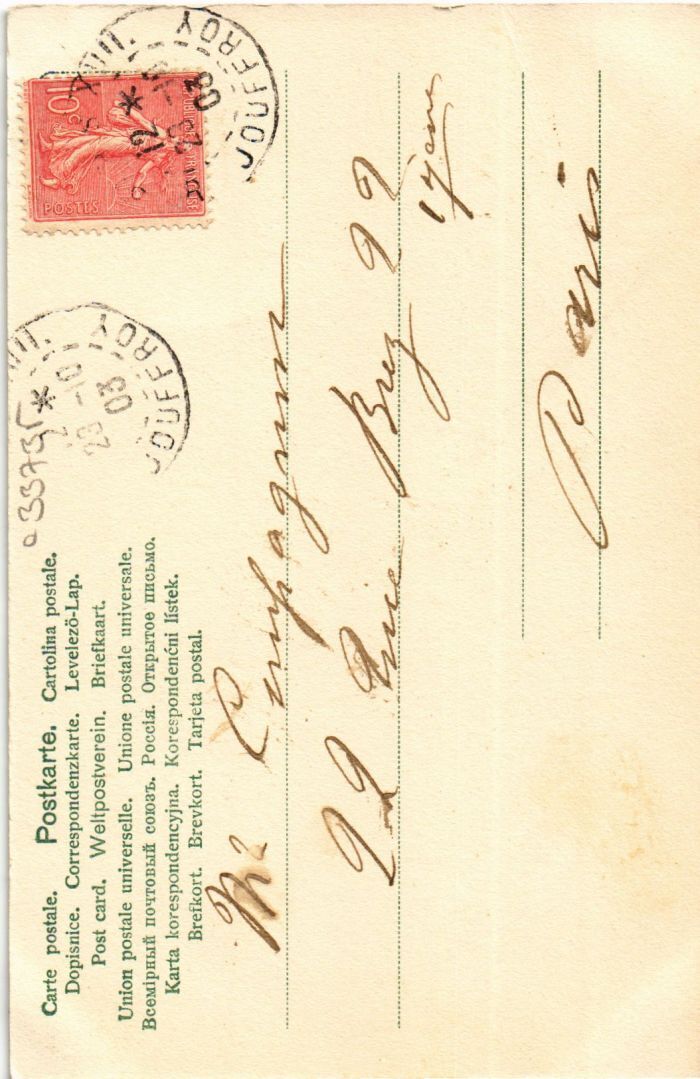 Carte postale. Postkarte. Cartolina postale.
Dopisnice. Correspondenzkarte. Levelező-Lap.
Post card. Weltpostverein. Briefkaart.
Union postale universelle. Unione postale universale.
Всемірный почтовый союзъ. Россія. Открытое письмо.
Karta korespondencyjna. Korespondenćni lístek.
Brefkort. Brevkort. Tarjeta postal.
33735
JOUFFROY
23 -10
03
10c
POSTES
JOUFFROY
12 *
23 -10
03
22 Rue Brey 22
17eme
Paris